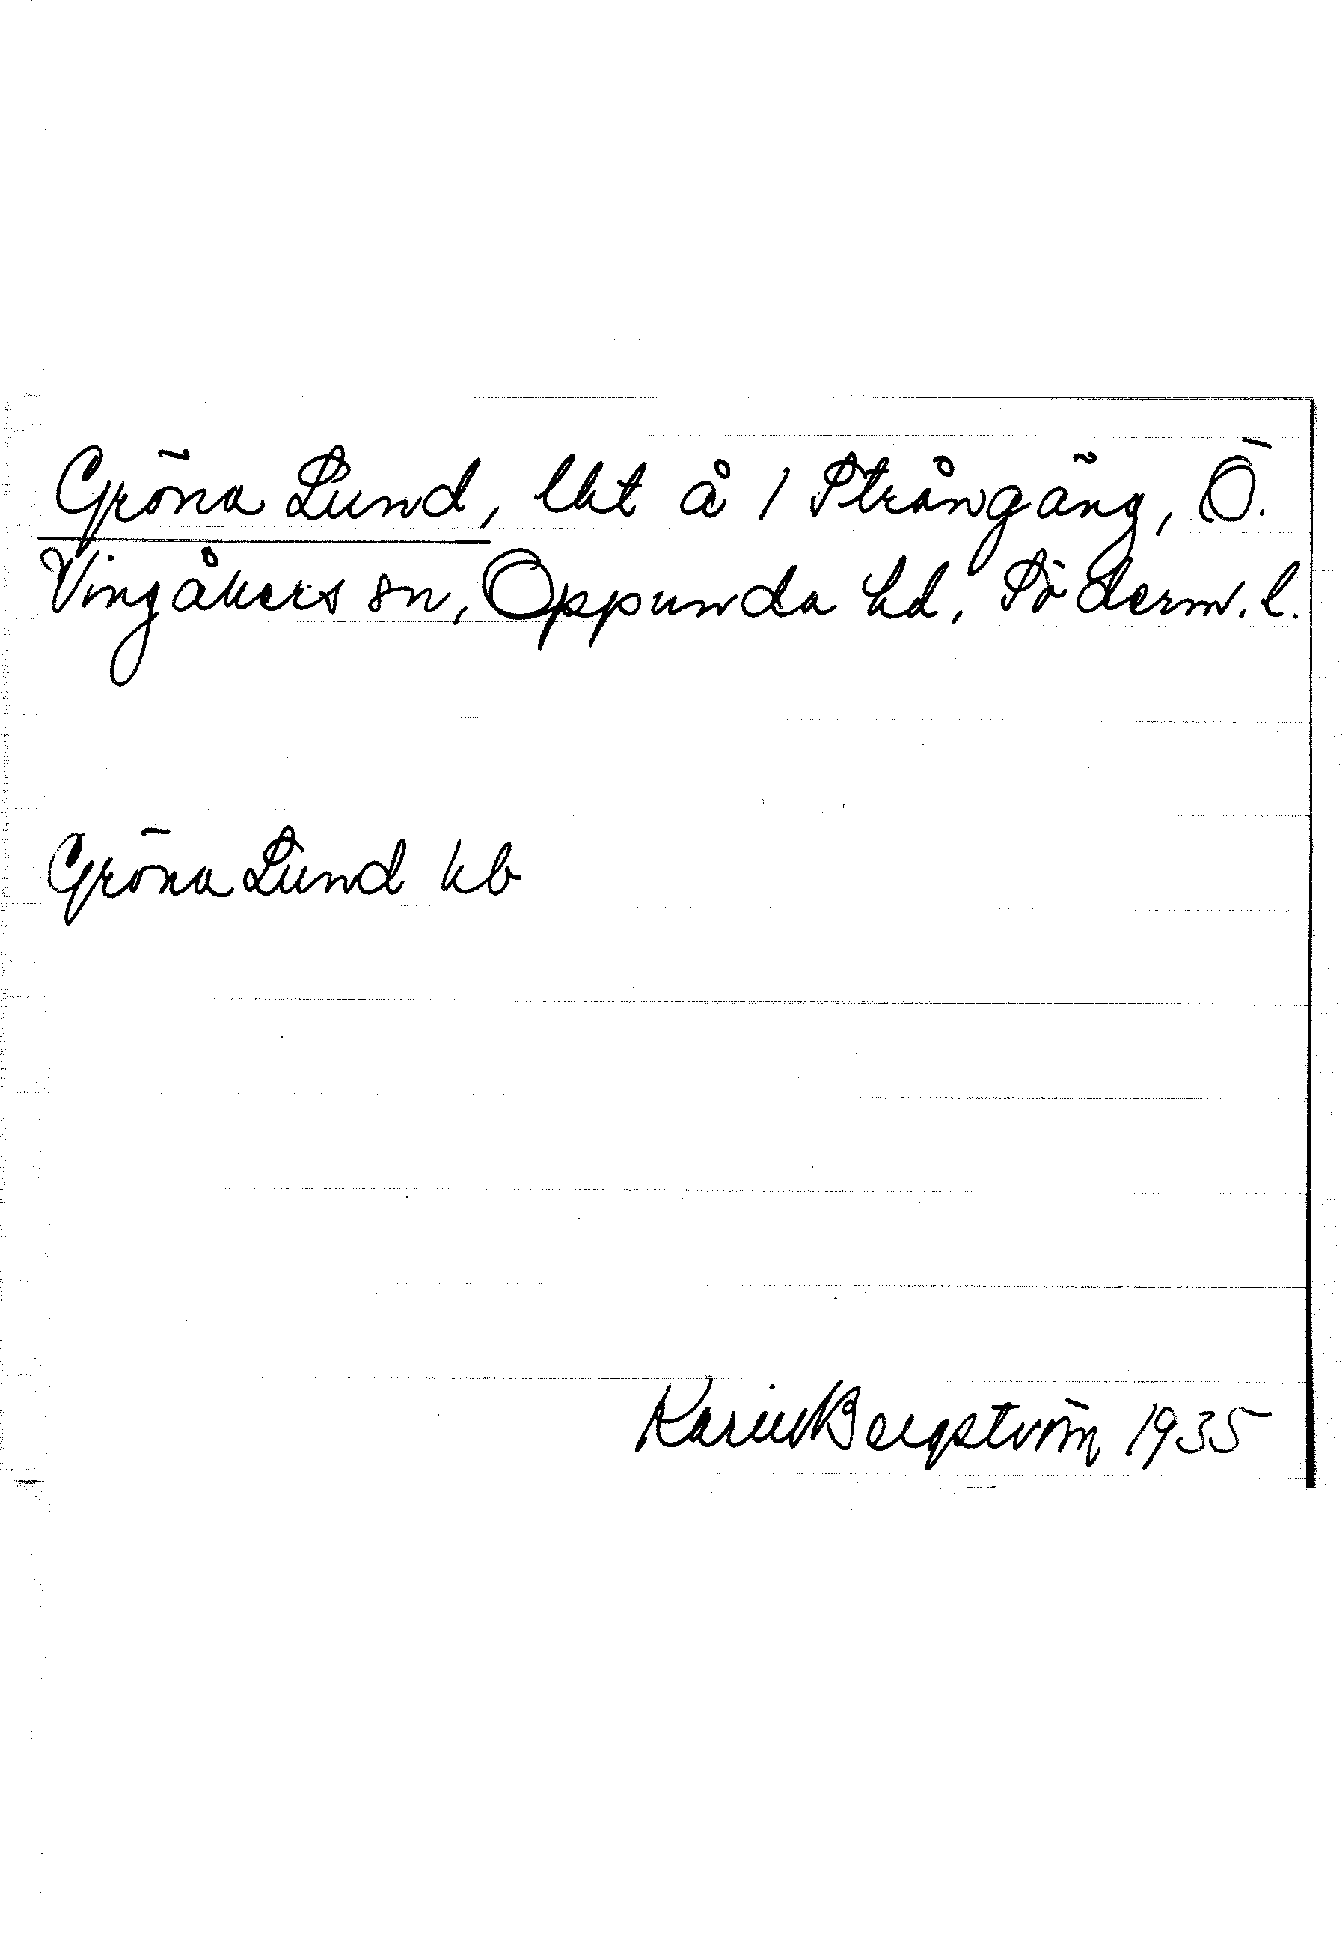 Gröna Lund, lht å 1 Strångäng, Ö.
Vingåkers sn, Oppunda hd, Söderm. l.
Gröna Lund kb
Karin Bergström 1935